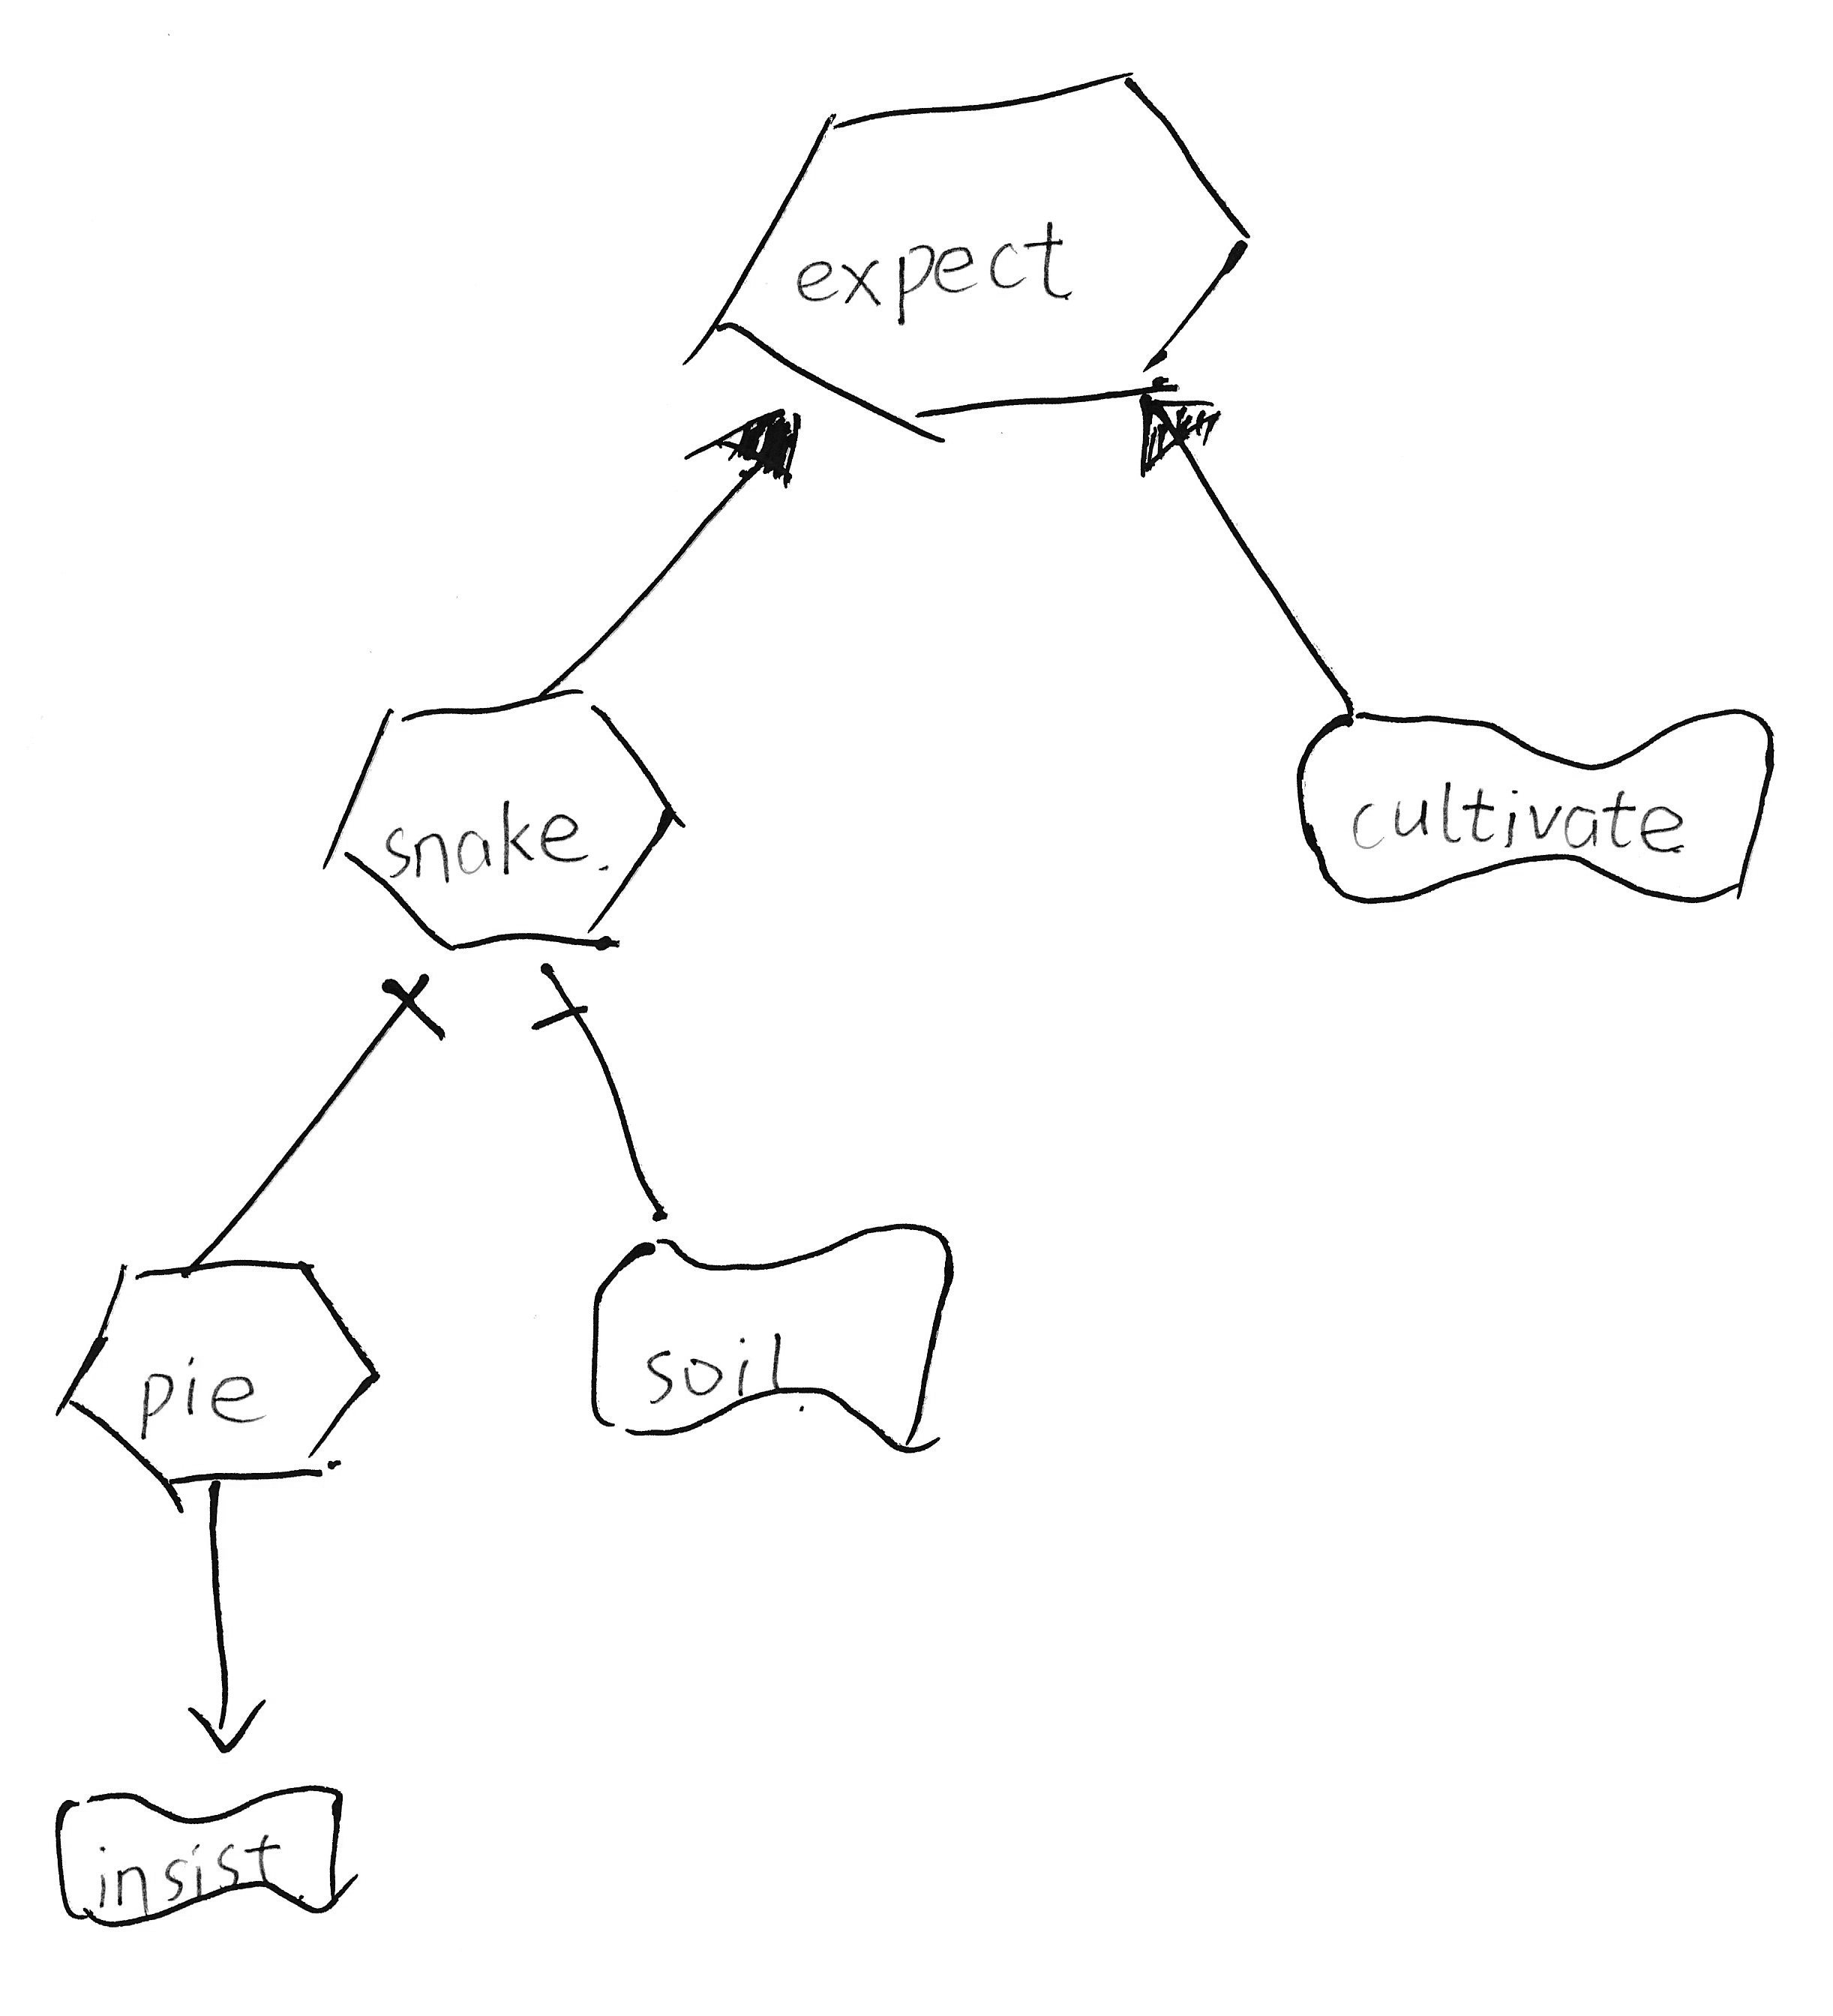 expect
snake
cultivate
pie
soil
insist